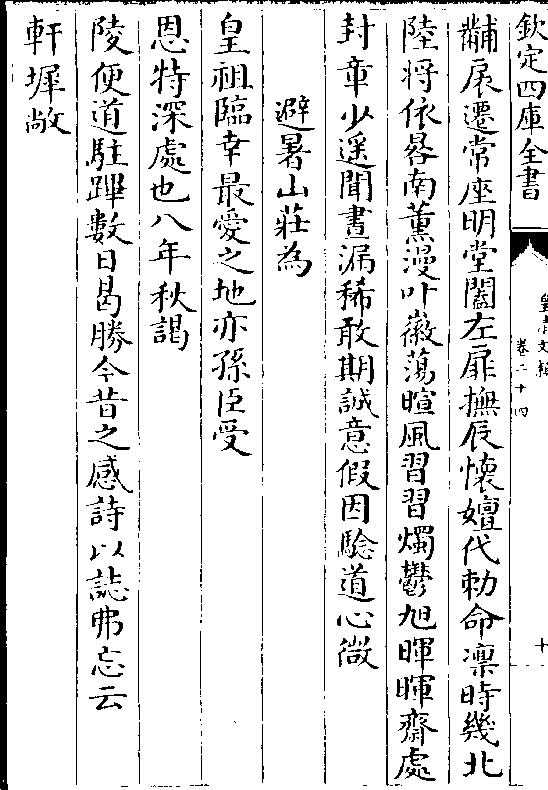 欽定四庫全書
皇清文穎
卷二十四
十
黼扆遷常座明堂闔左扉撫辰懷嬗代勅命凛時幾北
陸将依晷南薰漫叶徽蕩暄風習習燭鬱旭暉暉齋處
封章少遥聞晝漏稀敢期誠意假因騐道心微
避暑山莊為
皇祖臨幸最愛之地亦孫臣受
恩特深處也八年秋謁
陵便道駐蹕數日曷勝今昔之感詩以誌弗忘云
軒墀敞